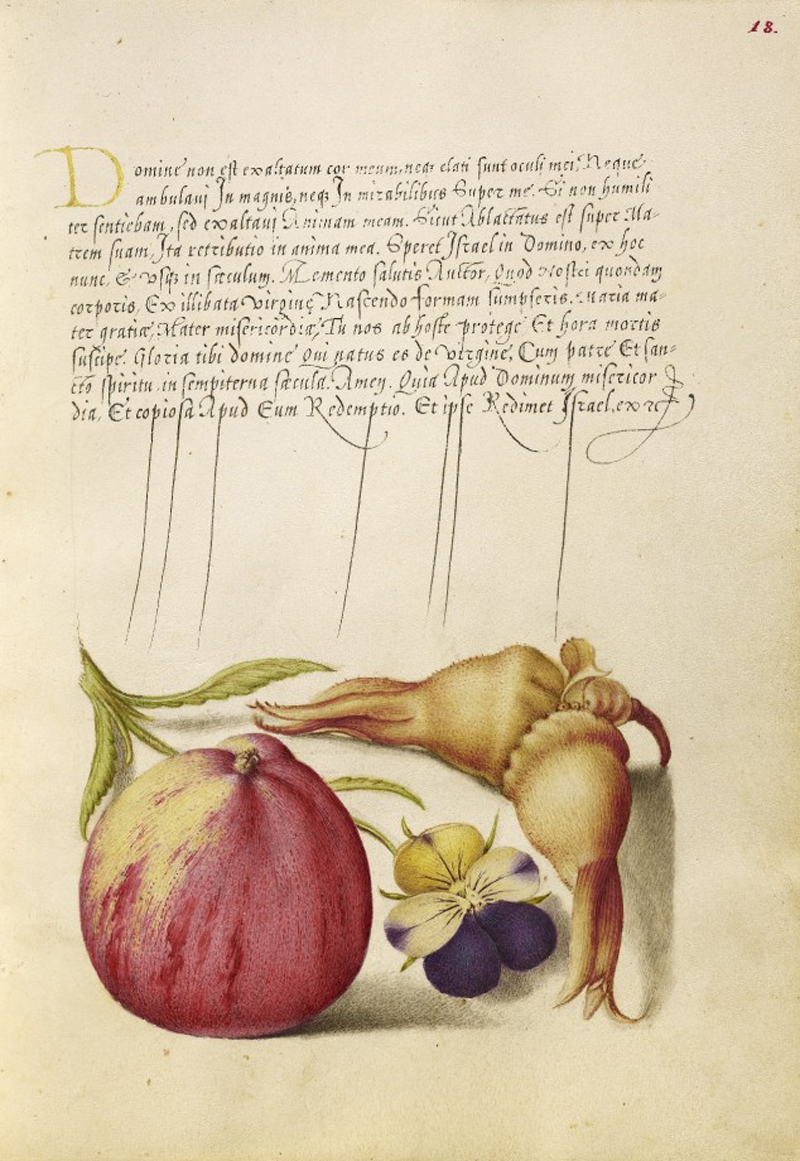 18.
Domine non est exaltatum cor meum, neq₃ elati sunt oculi mei, Neque
ambulaui In magnis, neq₃ In mirabilibus Super me. Si non humili
ter sentiebam, sed exaltaui Animam meam. Sicut Ablactatus est super Ma-
trem suam, Ita retributio in anima mea. Speret Israel in Domino, ex hoc
nunc, & vsq₃ in sæculum. Memento salutis Auctor, Quod nostri quondam
corporis, Ex illibata virgine Nascendo formam sumpseris. Maria ma-
ter gratiæ, Mater misericordiæ, Tu nos ab hoste protege Et hora mortis
suscipe. Gloria tibi domine Qui natus es de virgine, Cum patre Et san-
cto spiritu in sempiterna sæcula. Amen. Quia Apud Dominum misericor
dia, Et copiosa Apud Eum Redemptio. Et ipse Redimet Israel, ex